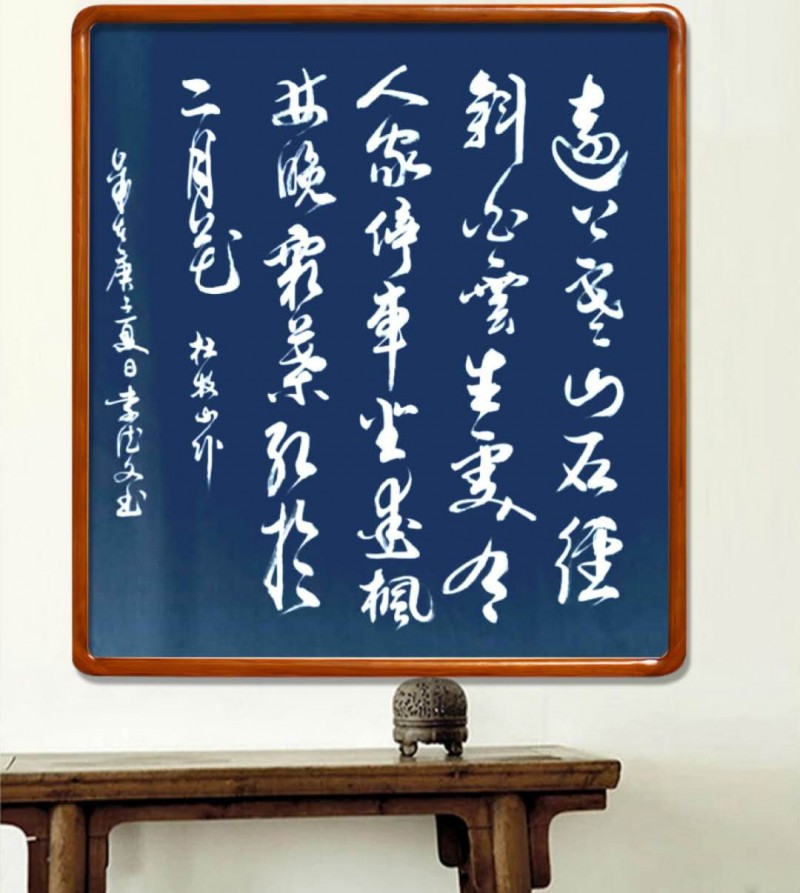 遠上寒山石徑
斜白雲生處有
人家停車坐愛楓
林晚霜葉紅於
二月花 杜牧山行
歲在庚子夏日李文書